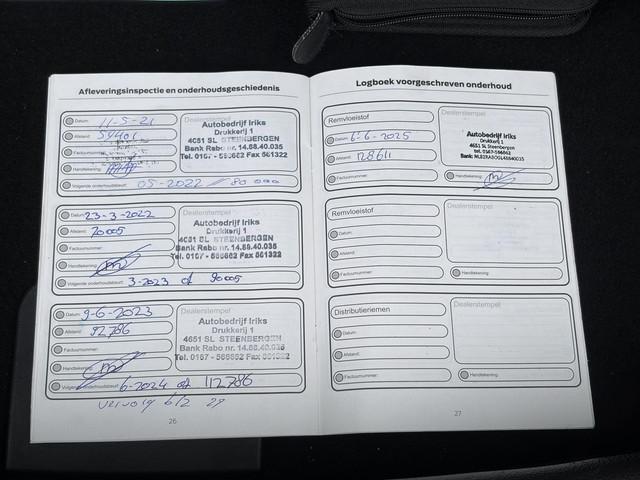 Afleveringsinspectie en onderhoudsgeschiedenis
Datum: 11-5-21
Afstand: 59401
Factuurnummer:
Handtekening:
Volgende onderhoudsbeurt: 05-2022 / 80 000
Dealerstempel
Autobedrijf Iriks
Drukkerij 1
4651 SL STEENBERGEN
Bank Rabo nr. 14.88.40.035
Tel. 0167 - 566662 Fax 561322
Datum: 23-3-2022
Afstand: 70005
Factuurnummer:
Handtekening:
Volgende onderhoudsbeurt: 3-2023 of 90005
Dealerstempel
Autobedrijf Iriks
Drukkerij 1
4651 SL STEENBERGEN
Bank Rabo nr. 14.88.40.035
Tel. 0167 - 566662 Fax 561322
Datum: 9-6-2023
Afstand: 92786
Factuurnummer:
Handtekening:
Volgende onderhoudsbeurt: 6-2024 of 112786
Dealerstempel
Autobedrijf Iriks
Drukkerij 1
4651 SL STEENBERGEN
Bank Rabo nr. 14.88.40.035
Tel. 0167 - 566662 Fax 561322
vervolg blz 29
26
Logboek voorgeschreven onderhoud
Remvloeistof
Datum: 6-6-2025
Afstand: 128611
Factuurnummer:
Dealerstempel
Autobedrijf Iriks
Drukkerij 1
4651 SL Steenbergen
tel. 0167-566662
Handtekening:
Remvloeistof
Datum:
Afstand:
Factuurnummer:
Dealerstempel
Handtekening:
Distributieriemen
Datum:
Afstand:
Factuurnummer:
Dealerstempel
Handtekening:
27